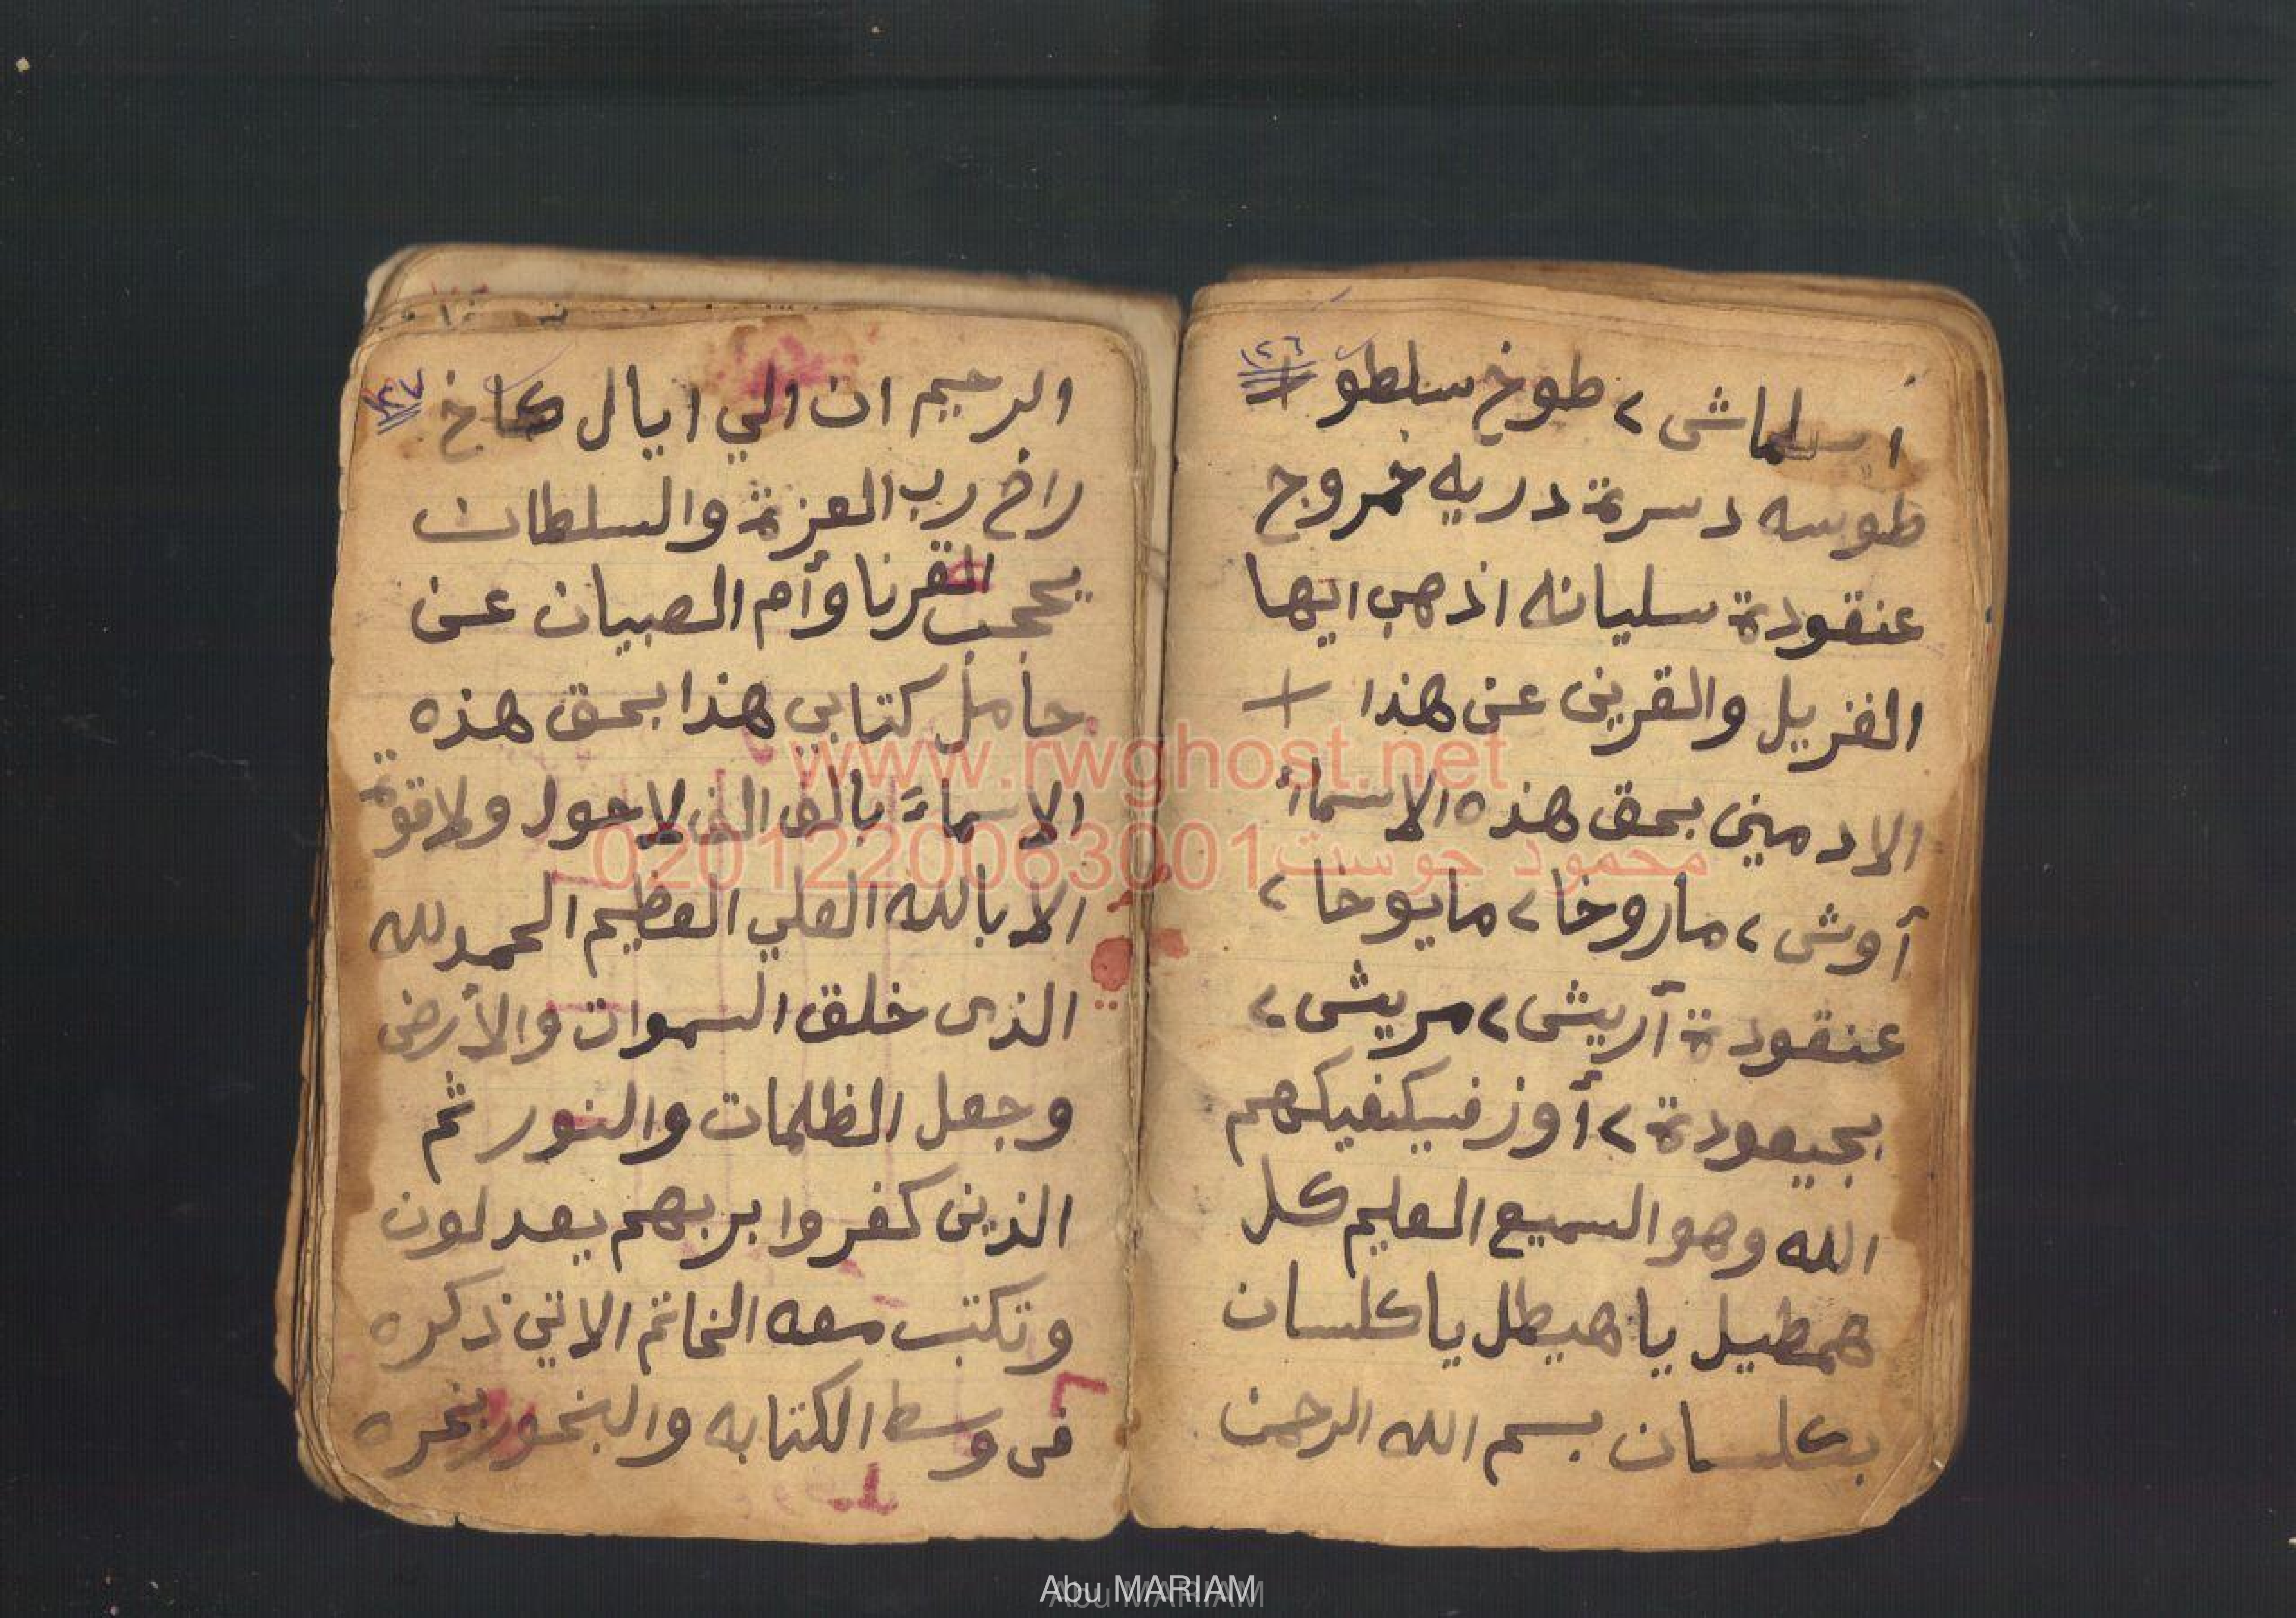 ١٢٦
ايسلماشى ، طوخ سلطو
طوسه دسرة دريه خمروج
عنقودة سليانه اذهب ايها
الغزيل والقرين عن هذا
الادمين بحق هذه الاسماأ
أوش ، ماروخا ، مايوخا ،
عنقودة آريش ، مريش ،
بجيعودة ، أوز فسيكفيكهم
الله وهو السميع العليم كل
همطيل يا هيطل يا كلسان
بكلسان بسم الله الرحمن
١٢٧
الرحيم ان الي ايال كاخ
راخ رب العزة والسلطان
يحجب القرنا وأم الصبيان عن
حامل كتابي هذا بحق هذه
الاسماء بالف الف لاحول ولاقوة
الا بالله العلي العظيم الحمد لله
الذى خلق السموات والأرض
وجعل الظلمات والنور ثم
الذين كفروا بربهم يعدلون
وتكتب معه الخاتم الاتي ذكره
فى وسط الكتابه والبخور بخره
www.rwghost.net
محمود جوست0201220063001
Abu MARIAM